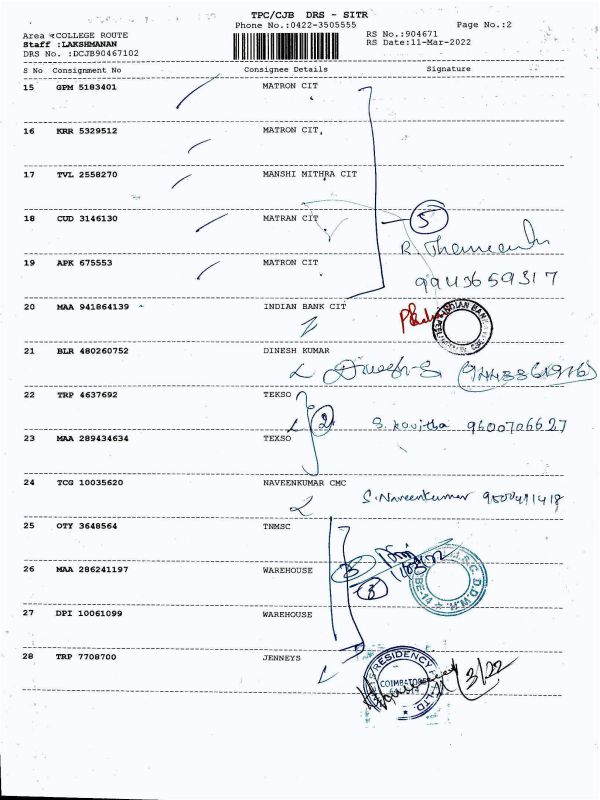 TPC/CJB DRS - SITR
Phone No.:0422-3505555
Page No.:2
Area :COLLEGE ROUTE
RS No.:904671
Staff :LAKSHMANAN
RS Date:11-Mar-2022
DRS No. :DCJB90467102
S No Consignment No Consignee Details Signature
15 GPM 5183401 MATRON CIT
16 KRR 5329512 MATRON CIT
17 TVL 2558270 MANSHI MITHRA CIT
18 CUD 3146130 MATRAN CIT
5
19 APK 675553 MATRON CIT
9943659317
20 MAA 941864139 INDIAN BANK CIT
INDIAN BANK
21 BLR 480260752 DINESH KUMAR
Dinesh-S
22 TRP 4637692 TEKSO
2 S. Kavitha 9600706627
23 MAA 289434634 TEXSO
24 TCG 10035620 NAVEENKUMAR CMC
S. Naveenkumar
25 OTY 3648564 TNMSC
26 MAA 286241197 WAREHOUSE
3
3
27 DPI 10061099 WAREHOUSE
28 TRP 7708700 JENNEYS
RESIDENCY
COIMBATORE
11/3/22